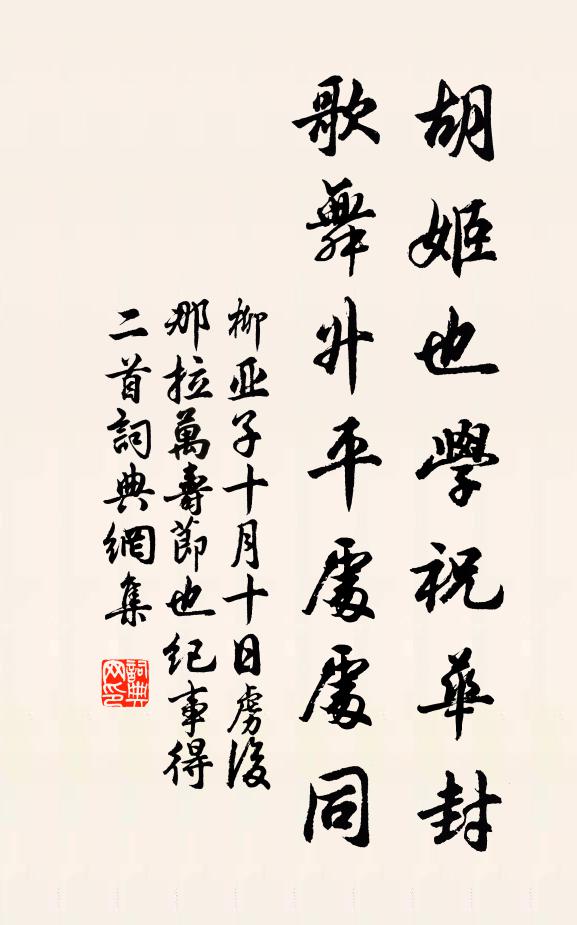 胡姬也學祝華封
歌舞升平處處同
柳亚子十月十日虜後
那拉萬壽節也纪事得
二首詞典網集
詞典网印